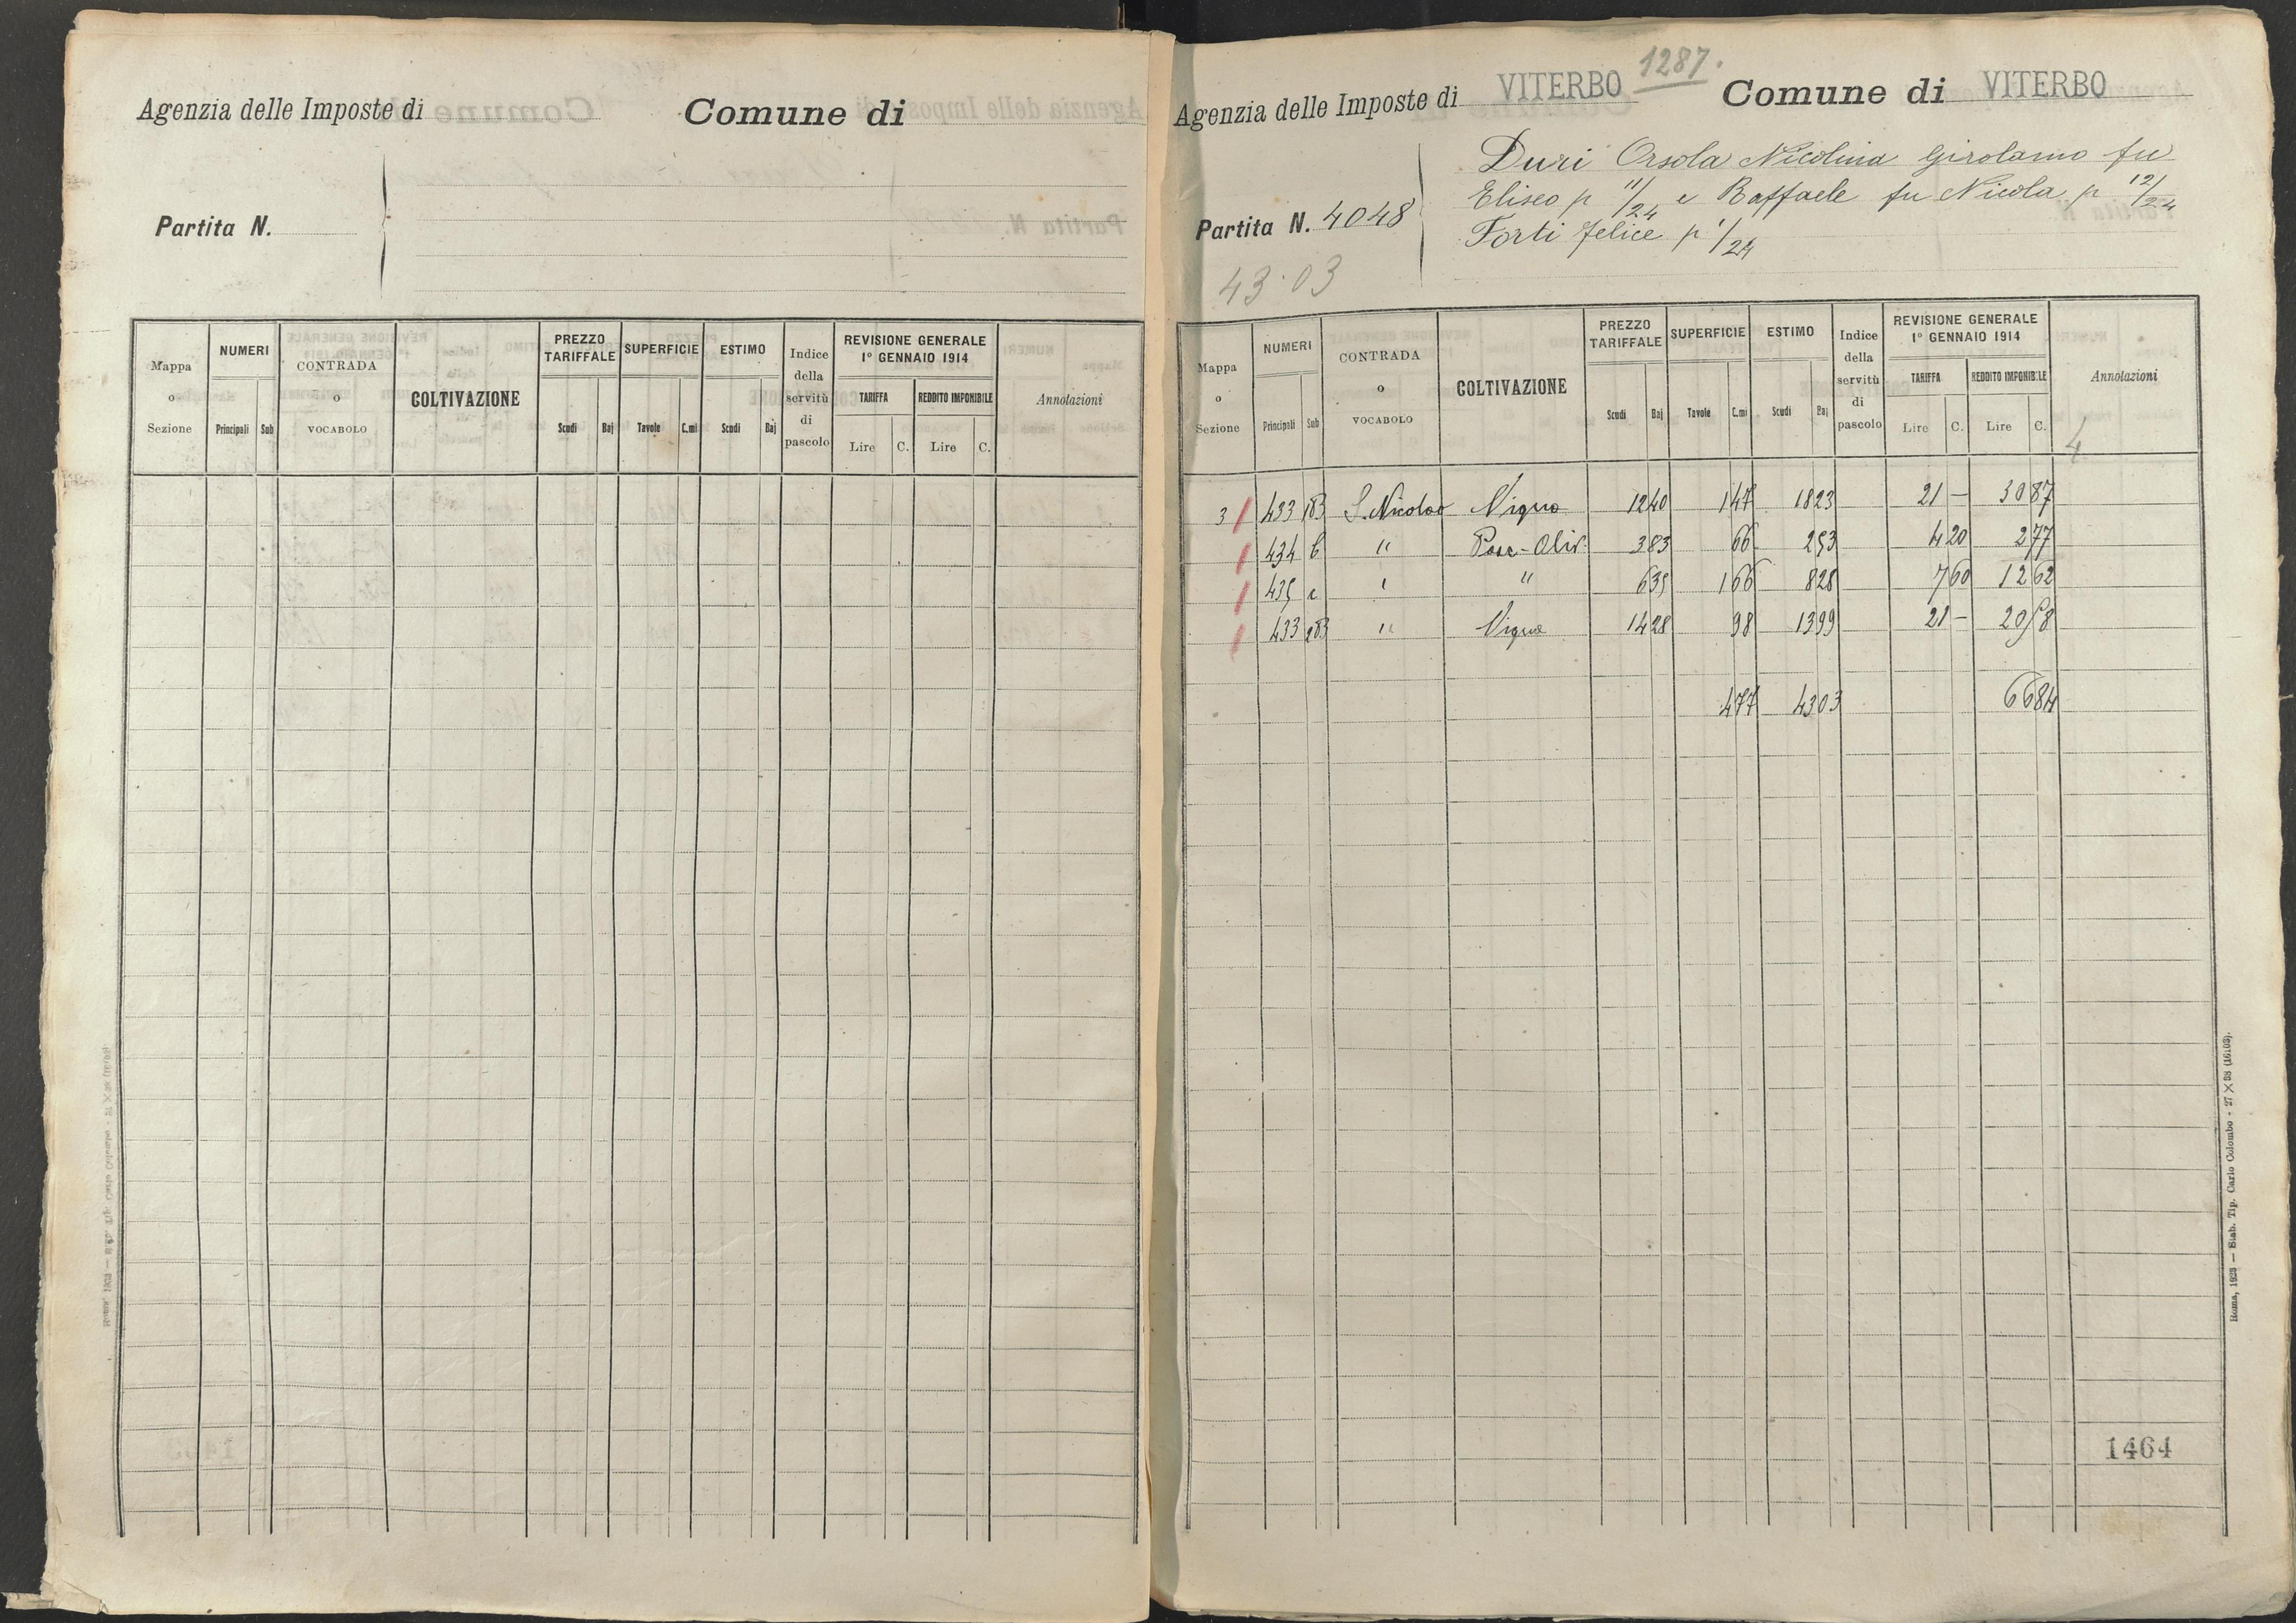 Agenzia delle Imposte di
Comune di
Partita N.
Mappa o Sezione
NUMERI
Principali Sub
CONTRADA o VOCABOLO
COLTIVAZIONE
PREZZO TARIFFALE
Scudi Baj
SUPERFICIE
Tavole C.mi
ESTIMO
Scudi Baj
Indice della servitù di pascolo
REVISIONE GENERALE
1° GENNAIO 1914
TARIFFA
Lire C.
REDDITO IMPONIBILE
Lire C.
Annotazioni
1287.
Agenzia delle Imposte di VITERBO Comune di VITERBO
Duri Orsola Nicolina Girolamo fu
Eliseo p 11/24 e Raffaele fu Nicola p 12/24
Forti Felice p 1/24
Partita N. 4048
43·03
Mappa o Sezione
NUMERI
Principali Sub
CONTRADA o VOCABOLO
COLTIVAZIONE
PREZZO TARIFFALE
Scudi Baj
SUPERFICIE
Tavole C.mi
ESTIMO
Scudi Baj
Indice della servitù di pascolo
REVISIONE GENERALE
1° GENNAIO 1914
TARIFFA
Lire C.
REDDITO IMPONIBILE
Lire C.
Annotazioni
4
3 433 S. Nicolao Vigna 12 40 1 47 18 23 21 — 30 87
434 b " Pasc-Oliv. 3 83 66 2 53 4 20 2 77
435 " 6 35 1 66 8 28 7 60 12 62
433 " Vigna 14 28 98 13 99 21 — 20 58
4 77 43 03 66 84
1464
Roma, 1923 — Stab. Tip. Carlo Colombo - 27 X 38 (16103).